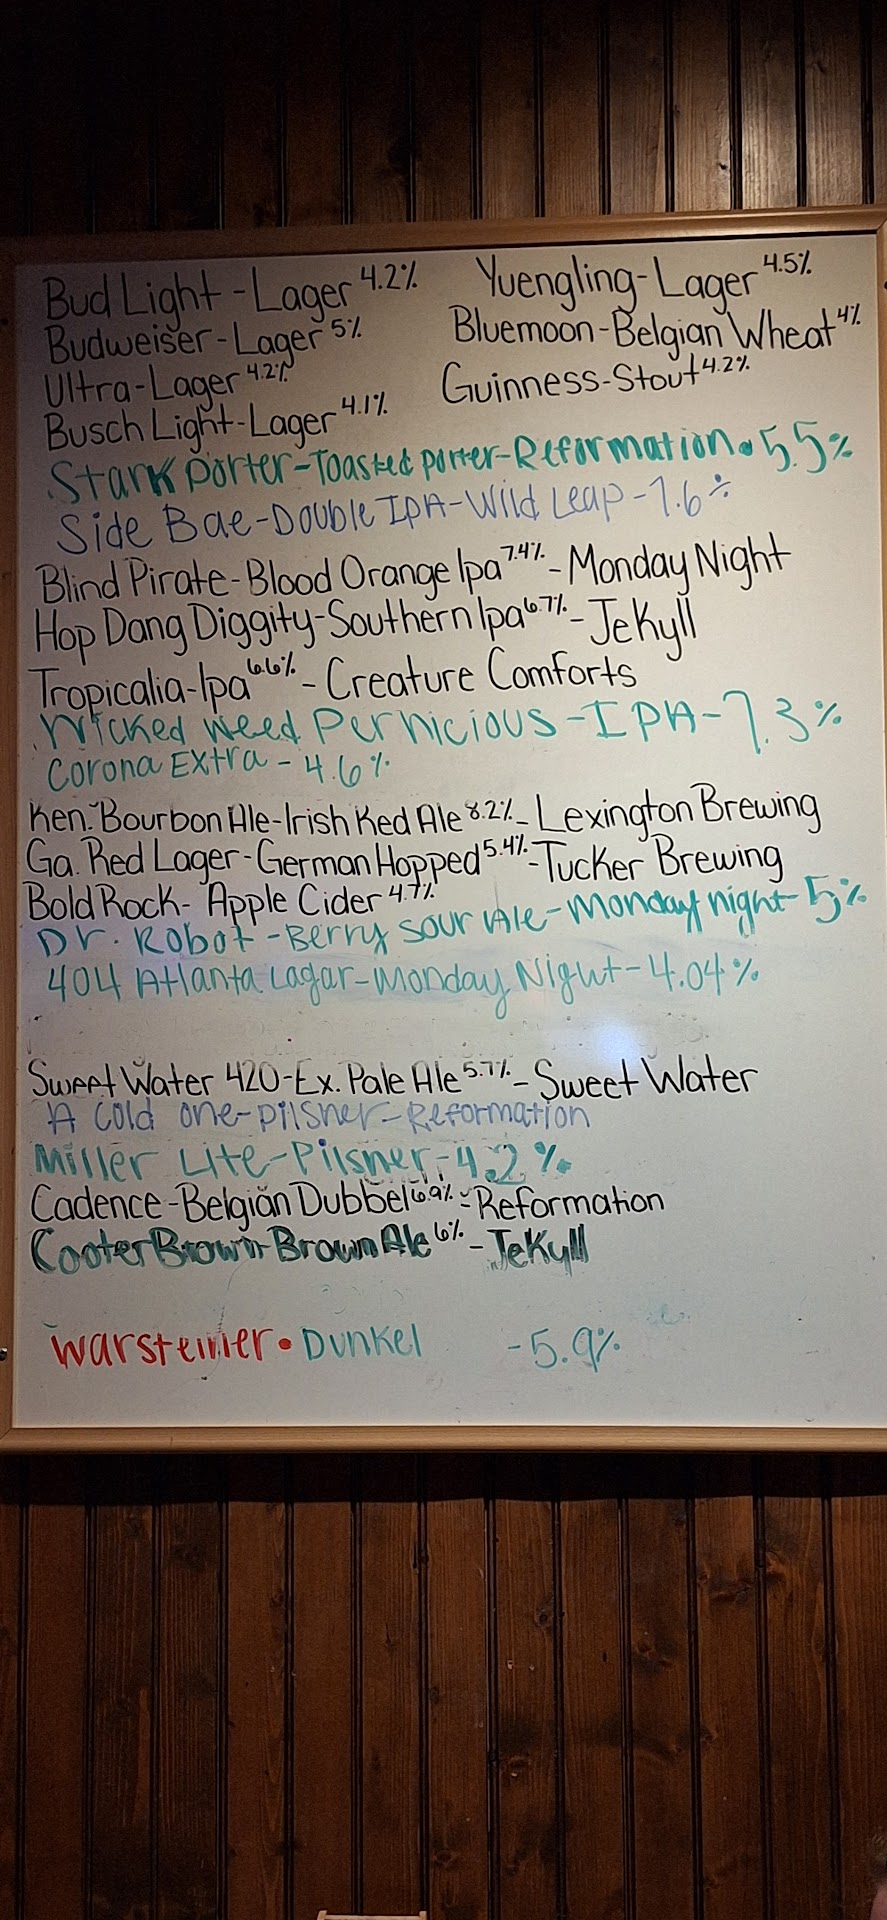 Bud Light - Lager 4.2%
Yuengling - Lager 4.5%
Budweiser - Lager 5%
Bluemoon - Belgian Wheat 4%
Ultra - Lager 4.2%
Guinness - Stout 4.2%
Busch Light - Lager 4.1%
Stark Porter - Toasted Porter - Reformation • 5.5%
Side Bae - Double IPA - Wild Leap - 7.6%
Blind Pirate - Blood Orange Ipa 7.4% - Monday Night
Hop Dang Diggity - Southern Ipa 6.7% - Jekyll
Tropicalia - Ipa 6.6% - Creature Comforts
Wicked Weed Pernicious - IPA - 7.3%
Corona Extra - 4.6%
Ken. Bourbon Ale - Irish Red Ale 8.2% - Lexington Brewing
Ga. Red Lager - German Hopped 5.4% - Tucker Brewing
Bold Rock - Apple Cider 4.7%
Dr. Robot - Berry Sour Ale - Monday night - 5%
404 Atlanta Lagar - Monday Night - 4.04%
Sweet Water 420 - Ex. Pale Ale 5.7% - Sweet Water
A Cold one - pilsner - Reformation
Miller Lite - Pilsner - 4.2%
Cadence - Belgian Dubbel 6.9% - Reformation
Cooter Brown - Brown Ale 6% - Jekyll
Warsteiner • Dunkel - 5.9%